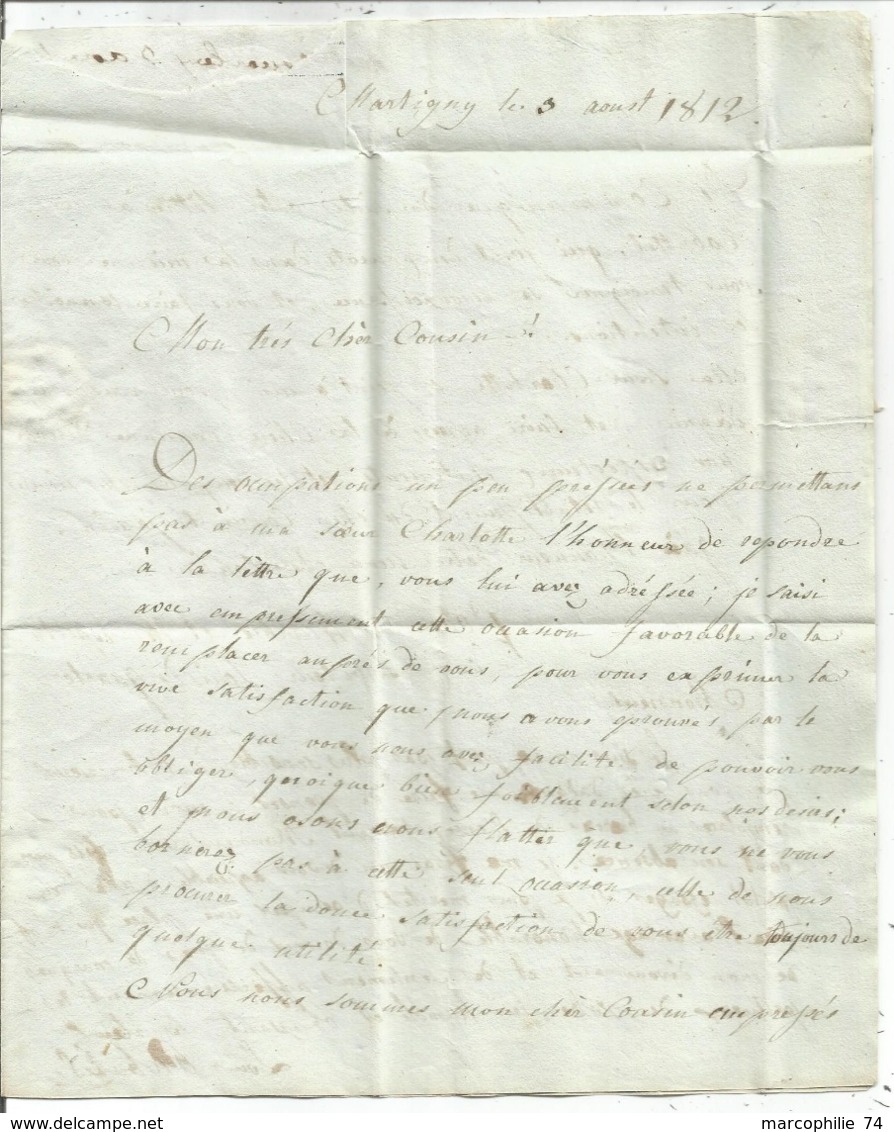 Martigny le 3 aoust 1812.
Mon trés Chèr Cousin !
Des ocupations un peu préssées ne permettans
pas à ma sœur Charlotte l'honneur de repondre
à la lèttre que, vous lui avez adréssée; je saisi
avec empressement cette ocasion favorable de la
remplacer auprés de vous, pour vous exprimer la
vive satisfaction que nous avons eprouvés par le
moyen que vous nous avez facilité de pouvoir vous
obliger, quoique bien foiblement selon nos desirs;
et nous osons nous flatter que vous ne vous
bornerez pas à cette seul ocasion, celle de nous
procurer la douce satisfaction de vous etre toujours de
quelque utilité.
Nous nous sommes mon chèr Cousin empressés
www.delcampe.net
marcophilie 74